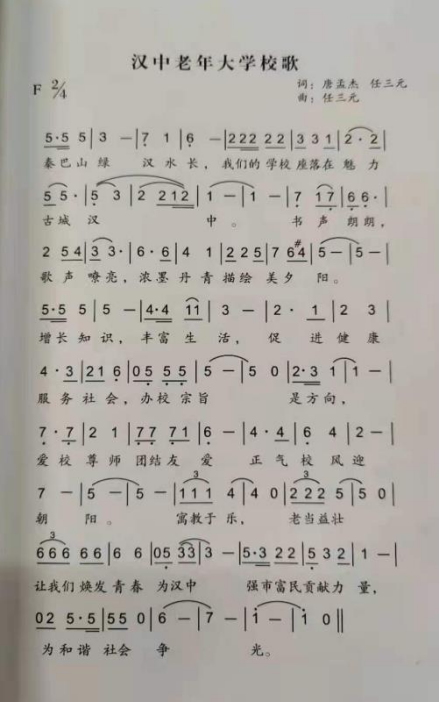 汉中老年大学校歌
F 2/4
词：唐孟杰 任三元
曲：任三元
5·5 5 | 3 － | 7 1 | 6 － | 222 22 | 33 1 | 2·2 |
秦巴山绿 汉水长，我们的学校座落在魅力
5 5· | 5 3 | 2 212 | 1 － | 1 － | 7 17 | 66· |
古城汉 中。 书声朗朗，
2 54 | 33· | 6·6 | 4 1 | 225 | 7 #64 | 5 － | 5 － |
歌声嘹亮，浓墨丹青描绘美夕阳。
5·5 5 | 5 － | 4·4 11 | 3 － | 2· 1 | 2 3 |
增长知识，丰富生活，促进健康
4·3 | 216 | 05 55 | 5 － | 5 0 | 2·3 1 | 1 － |
服务社会，办校宗旨 是方向，
7·7 | 2 1 | 77 71 | 6 － | 4·4 | 6 4 | 2 － |
爱校尊师团结友爱 正气校风迎
7 － | 5 － | 5 － | 111 4 | 4 0 | 222 5 | 5 0 |
朝阳。 寓教于乐， 老当益壮
666 66 | 6 6 | 05 33 | 3 － | 5·3 22 | 5 32 | 1 － |
让我们焕发青春为汉中 强市富民贡献力量，
02 5·5 | 55 0 | 6 － | 7 － | 1 － | 1 0 ‖
为和谐社会争 光。